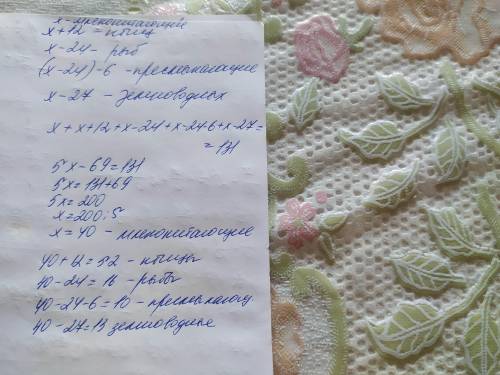 x - млекопитающие
x+12 = птиц
x-24 - рыб
(x-24)-6 - пресмыкающие
x-27 - земноводных
x+x+12+x-24+x-24-6+x-27=
= 131
5x-69=131
5x=131+69
5x=200
x=200:5
x=40 - млекопитающие
40+12=52 - птицы
40-24=16 - рыбы
40-24-6=10 - пресмыкающ.
40-27=13 земноводные